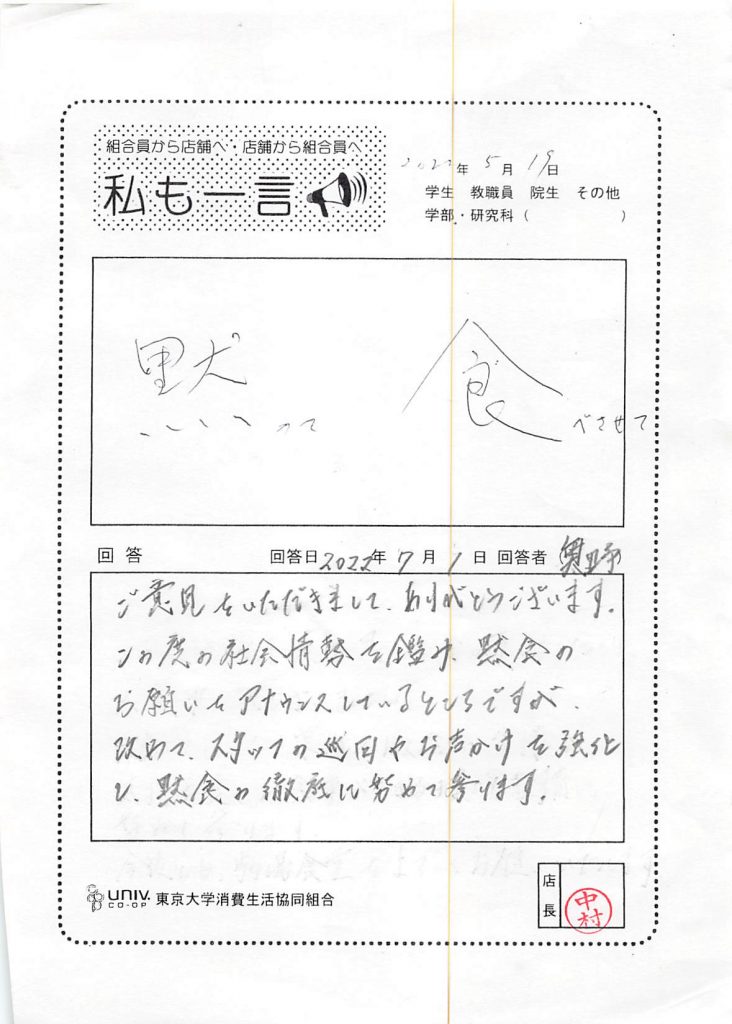 組合員から店舗へ・店舗から組合員へ
私も一言
2022年 5月 19日
学生 教職員 院生 その他
学部・研究科（ ）
黙って 食べさせて
回答 回答日 2022年 7月 1日 回答者 奥野
ご意見をいただきまして、ありがとうございます。
この度の社会情勢を鑑み、黙食の
お願いをアナウンスしているところですが、
改めて、スタッフの巡回やお声かけを強化
し、黙食の徹底に努めて参ります。
UNIV. CO-OP 東京大学消費生活協同組合
店長 中村